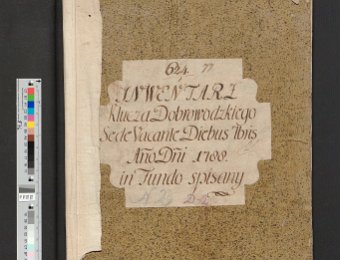 624 77
INWENTARZ
Klucza Dobrowodzkiego
Sede Vacante Diebus 7bris
Año Dñi 1788
in Fundo spisany